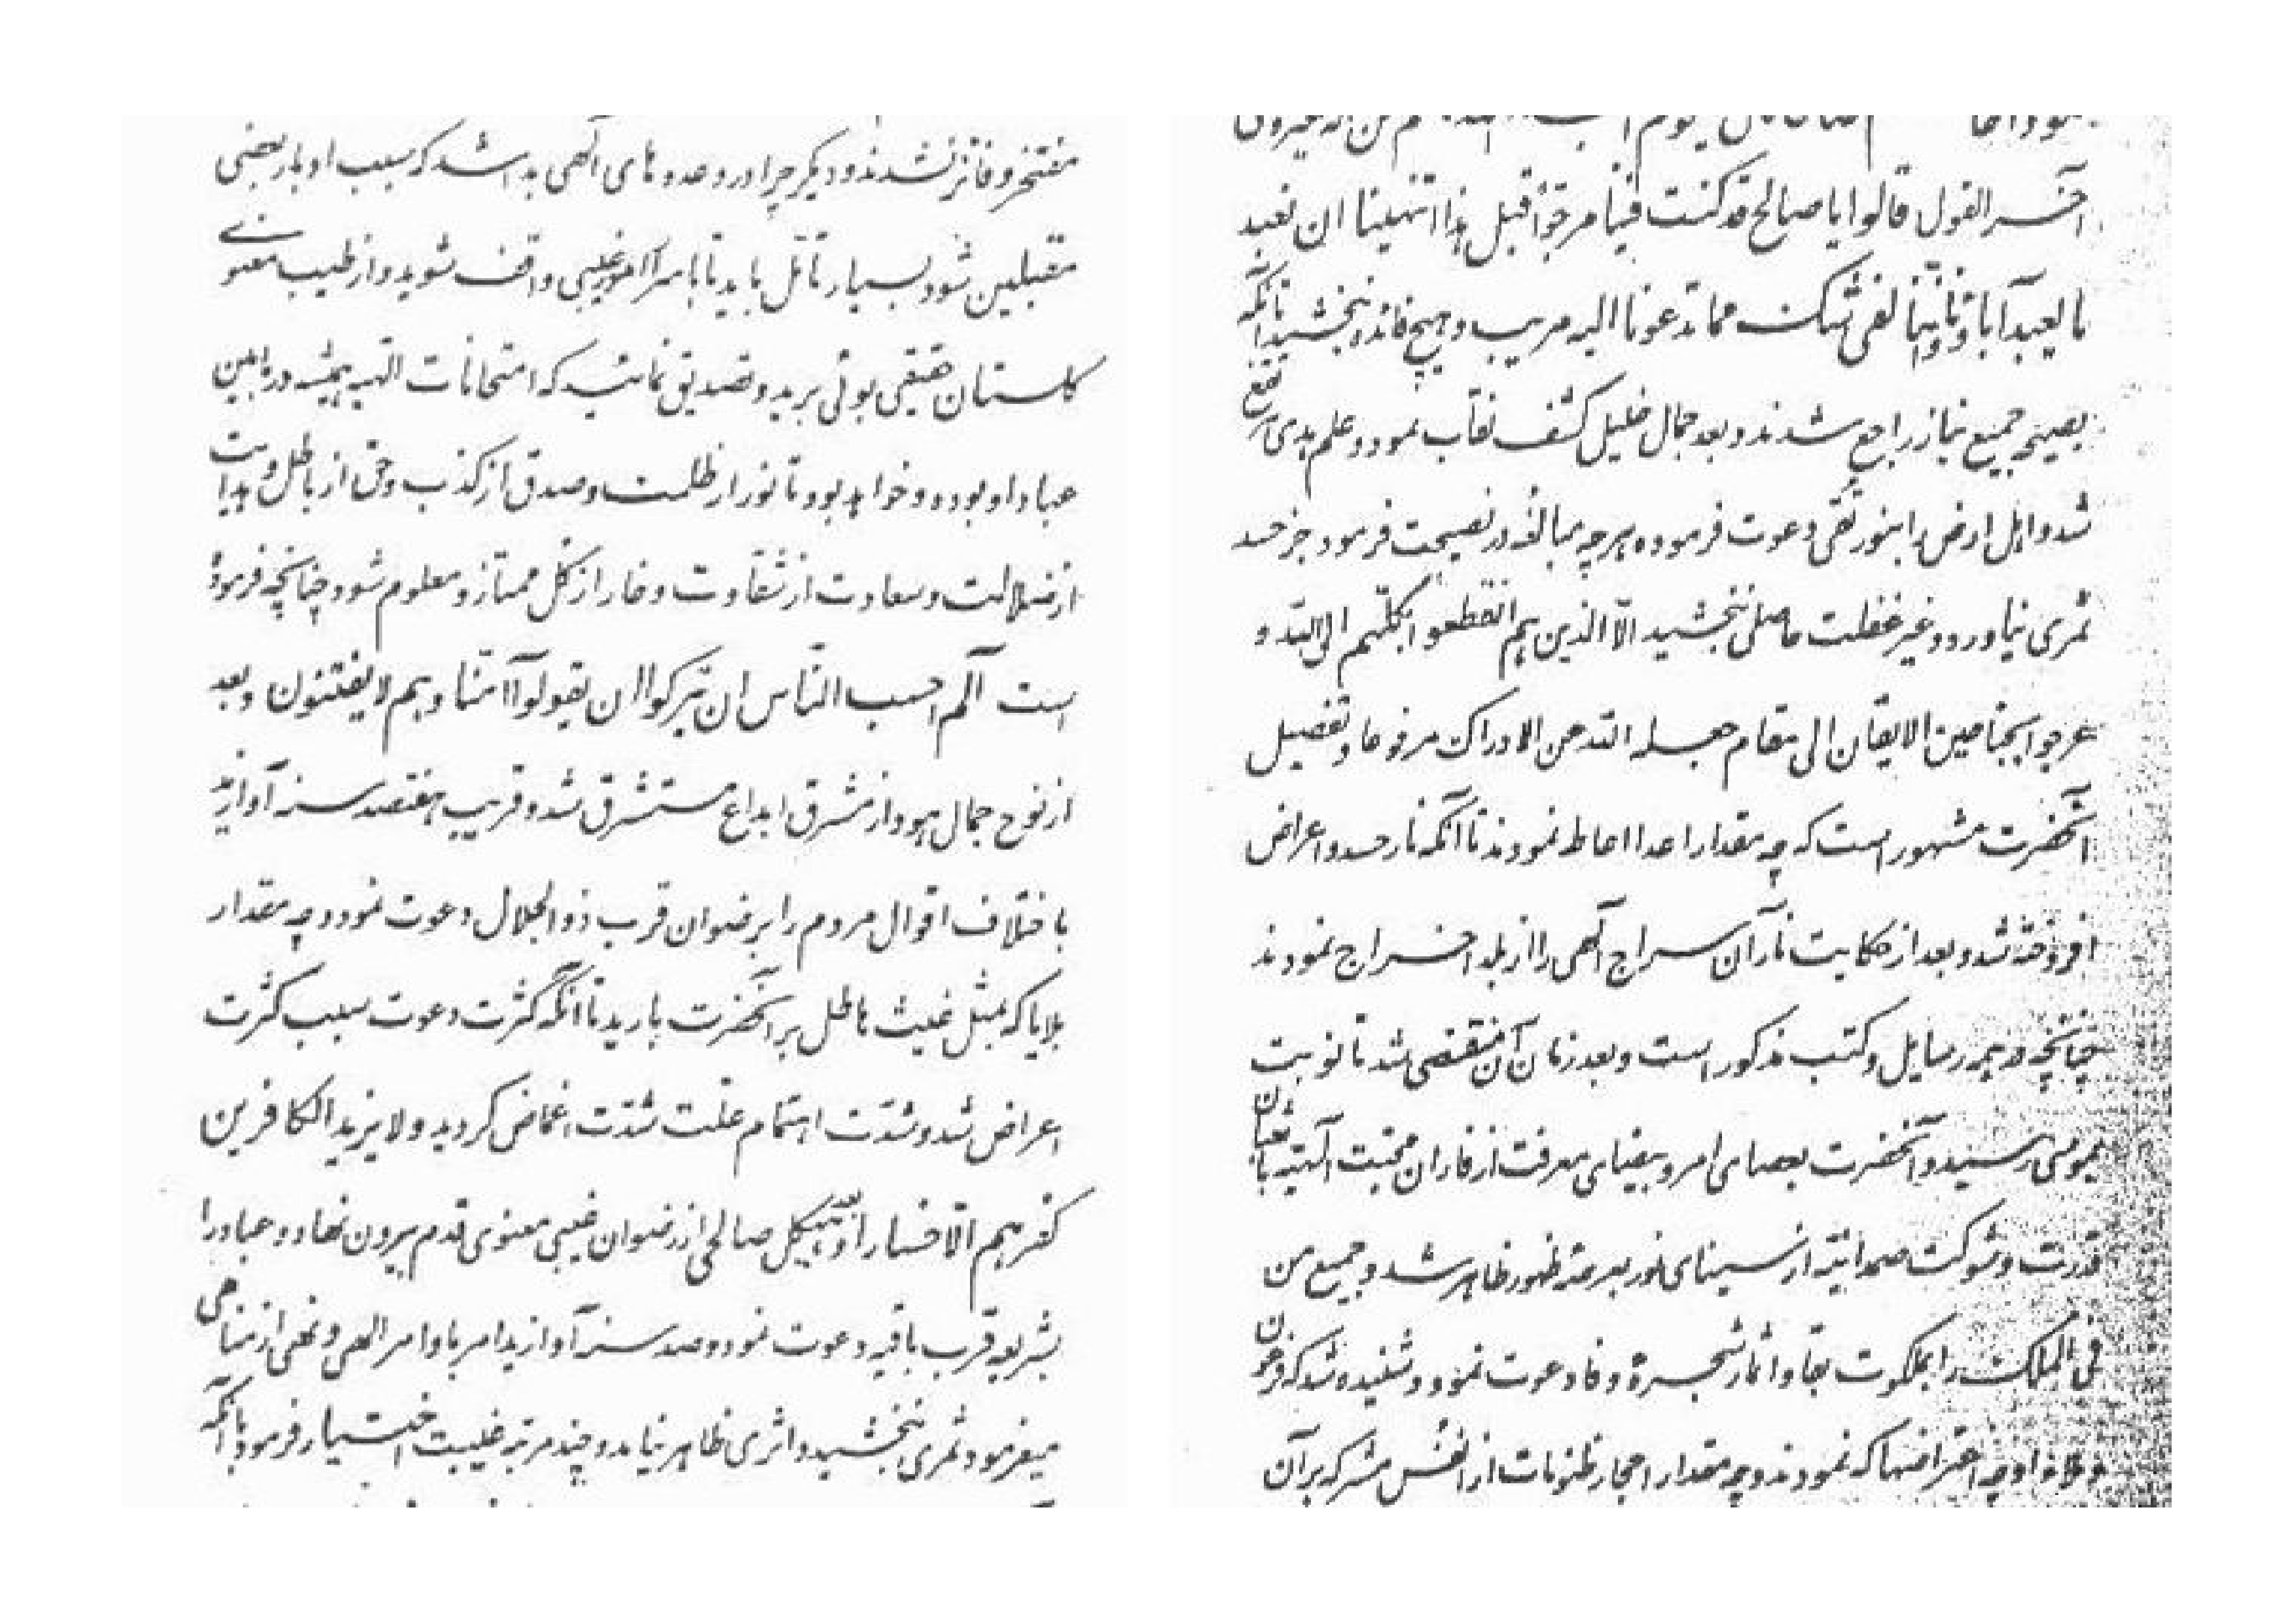 مفتخر و فائز نشدند و ديگر چرا در وعدهای آلهی بدا شد که سبب ادبار بعضی
مقبلین شود بسیار تأمل باید تا بر اسرار امور غیبی واقف شوید و از طیب معنوی
گلستان حقیقی بوئی برید و تصدیق نمائید که امتحانات الهیه همیشه در مابین
عباد او بوده و خواهد بود تا نور از ظلمت و صدق از کذب و حق از باطل و هدایت
از ضلالت و سعادت از شقاوت و خار از گل ممتاز و معلوم شود چنانچه فرموده
است آلم احسب الناس ان یترکوا ان یقولوا آمنا و هم لا یفتنون و بعد
از نوح جمال هود از مشرق ابداع مشرق شد و قریب هفتصد سنه او ازید
باختلاف اقوال مردم را برضوان قرب ذو الجلال دعوت نمود و چه مقدار
بلایا که بمثل غیث هاطل بر آنحضرت بارید تا آنکه کثرت دعوت سبب کثرت
اعراض شد و شدّت اهتمام علّت شدّت اغماض گردید و لا یزید الکافرین
کفرهم الّا خسارا و بعد هیکل صالحی از رضوان غیبی معنوی قدم بیرون نهاد و عباد را
بشریعه قرب باقیه دعوت نمود و صد سنه او ازید امر باوامر الهی و نهی از مناهی
میفرمود ثمری نبخشید و اثری ظاهر نیامد و چند مرتبه غیبت اختیار فرمود با آنکه
آخر القول قالوا یا صالح قد کنت فینا مرجوّا قبل هذا اتنهینا ان نعبد
ما یعبد آباؤنا و انّنا لفی شک مما تدعونا الیه مریب و هیچ فائده نبخشید تا آنکه
بصیحه جمیع بنار راجع شدند و بعد جمال خلیل کشف نقاب نمود و علم هدی مرتفع
شد و اهل ارض را بنور تقی دعوت فرموده هر چه مبالغه در نصیحت فرمود جز حسد
ثمری نیاورد و غیر غفلت حاصلی نبخشید الّا الذین هم انقطعوا بکلّهم الی الله و
عرجوا بجناحین الایقان الی مقام جعله الله عن الادراک مرفوعا و تفصیل
آنحضرت مشهور است که چه مقدار اعدا احاطه نمودند تا آنکه نار حسد و اعراض
افروخته شد و بعد از حکایت نار آن سراج آلهی را از بلد اخراج نمودند
چنانچه در همه رسایل و کتب مذکور است و بعد زمان آن منقضی شد تا نوبت
بموسی رسید و آنحضرت بعصای امر و بیضای معرفت از فاران محبّت الهیّه با ثعبان
قدرت و شوکت صمدانیّه از سینای نور بعرصه ظهور ظاهر شد و جمیع من
فی الملک را بملکوت بقا و اثمار شجره وفا دعوت نمود و شنیده شد که فرعون
و ملأ او چه اعتراضها که نمودند و چه مقدار احجار ظنونات از انفس مشرکه بر آن